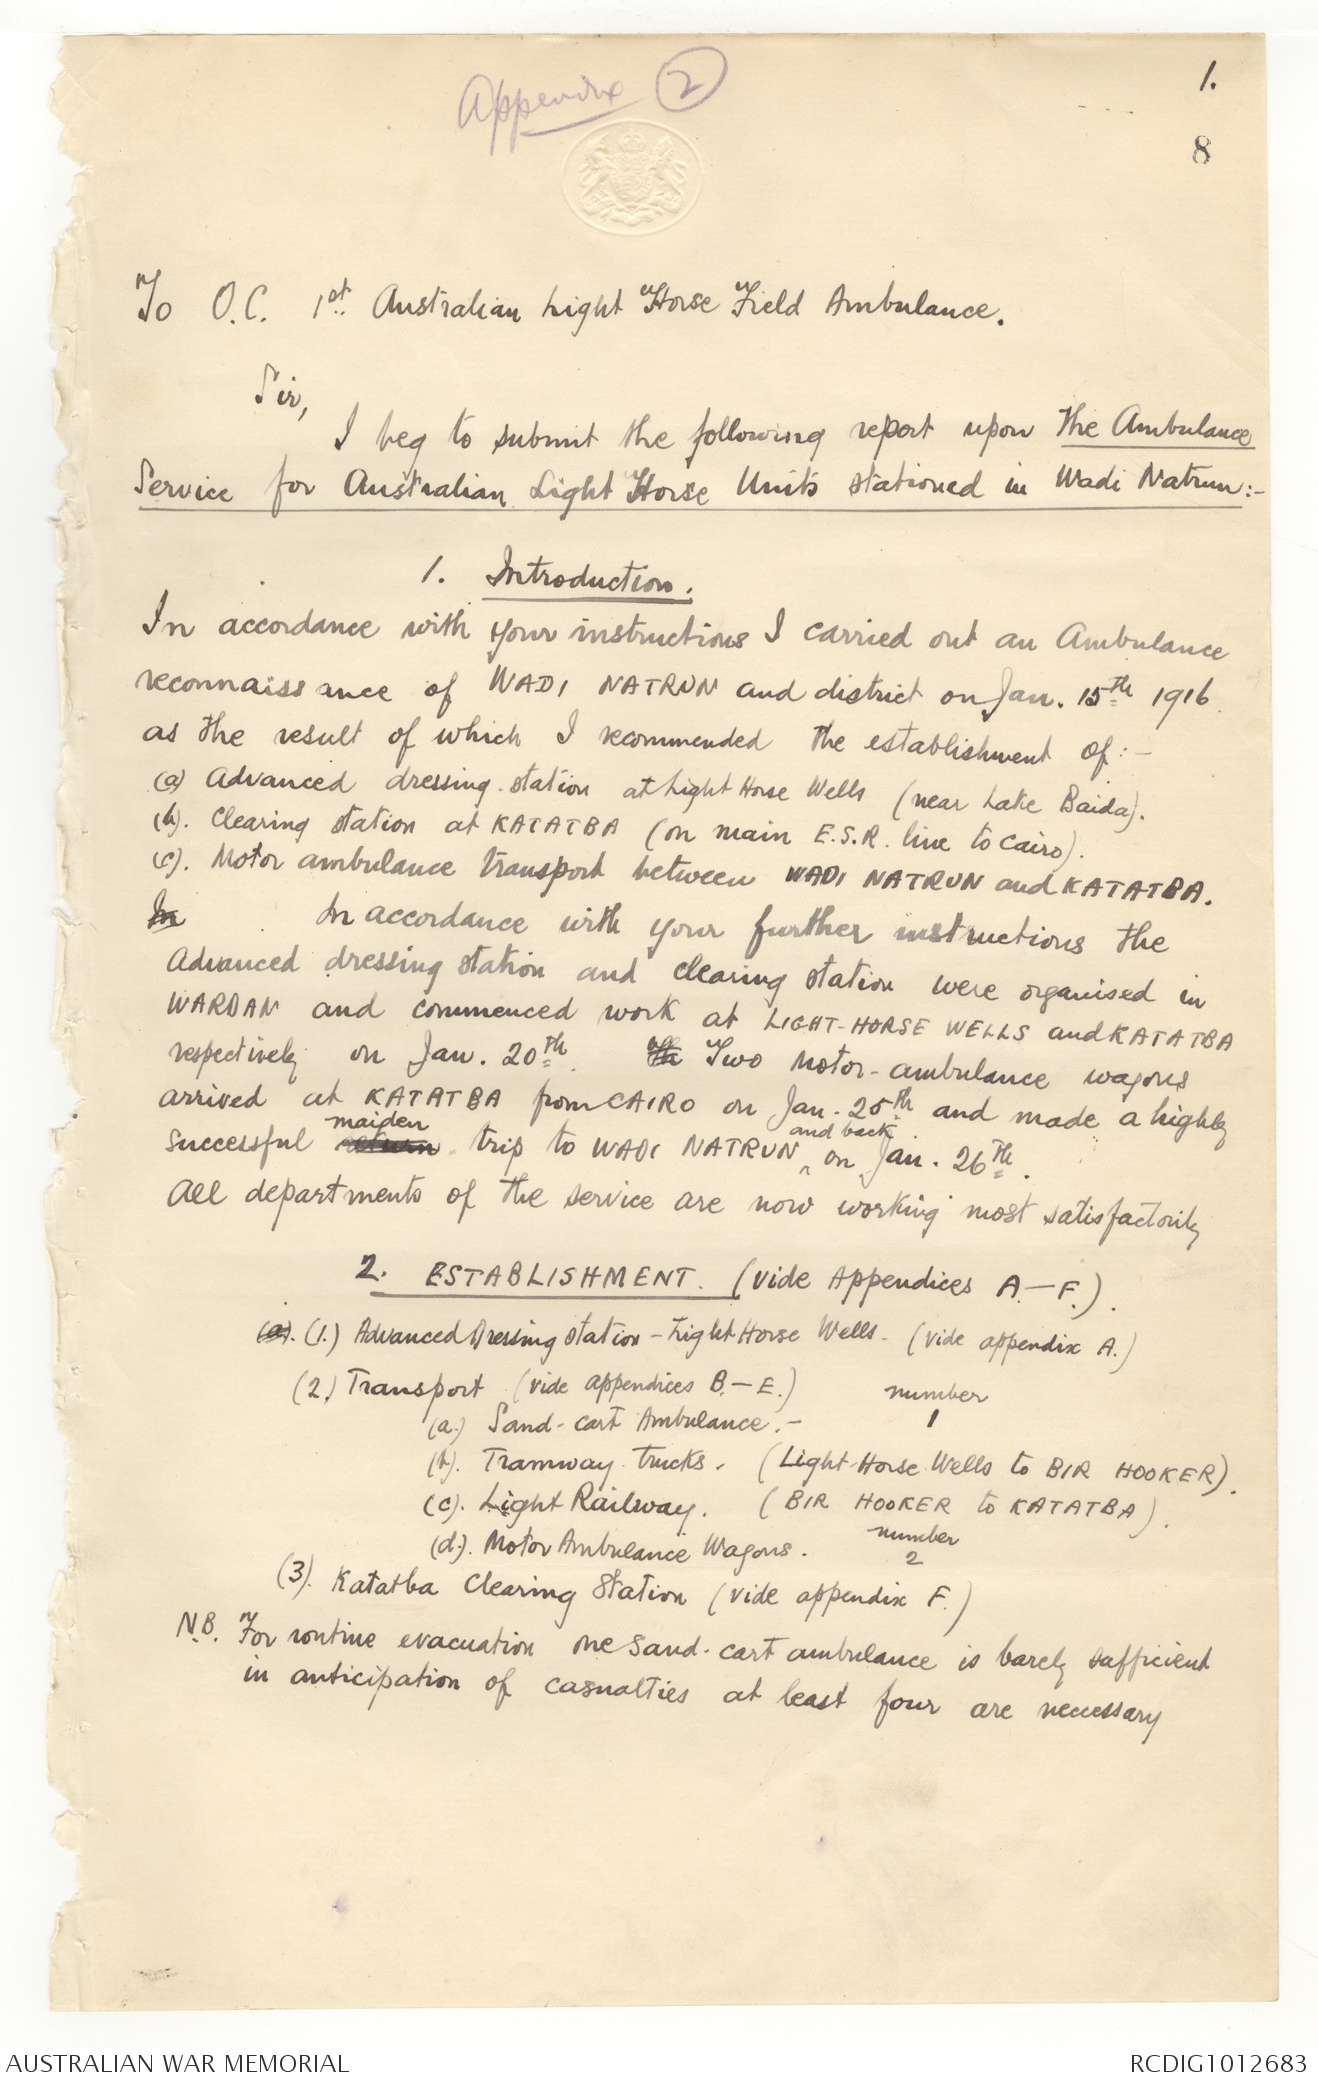 Appendix 2
1.
8
To O.C. 1st Australian Light Horse Field Ambulance.
Sir,
I beg to submit the following report upon The Ambulance
Service for Australian Light Horse Units stationed in Wadi Natrun:-
1. Introduction.
In accordance with your instructions I carried out an Ambulance
reconnaissance of WADI NATRUN and district on Jan. 15th 1916
as the result of which I recommended the establishment of:-
(a) Advanced dressing station at Light Horse Wells (near Lake Baida).
(b). Clearing station at KATATBA (on main E.S.R. line to Cairo).
(c). Motor ambulance transport between WADI NATRUN and KATATBA.
In In accordance with your further instructions the
Advanced dressing station and clearing station were organised in
WARDAN and commenced work at LIGHT-HORSE WELLS and KATATBA
respectively on Jan. 20th. Th Two Motor-ambulance wagons
arrived at KATATBA from CAIRO on Jan. 25th and made a highly
successful return maiden trip to WADI NATRUN and back on Jan. 26th.
All departments of the service are now working most satisfactorily
2. ESTABLISHMENT. (vide Appendices A-F.).
(a). (1.) Advanced Dressing Station - Light Horse Wells. (vide appendix A.)
(2.) Transport (vide appendices B.-E.) number
(a.) Sand-cart Ambulance.- 1
(b). Tramway trucks. (Light Horse Wells to BIR HOOKER).
(c). Light Railway. (BIR HOOKER to KATATBA).
number
(d.). Motor Ambulance Wagons. 2
(3). Katatba Clearing Station (vide appendix F.)
N.B. For routine evacuation one sand-cart ambulance is barely sufficient
in anticipation of casualties at least four are necessary
AUSTRALIAN WAR MEMORIAL
RCDIG1012683